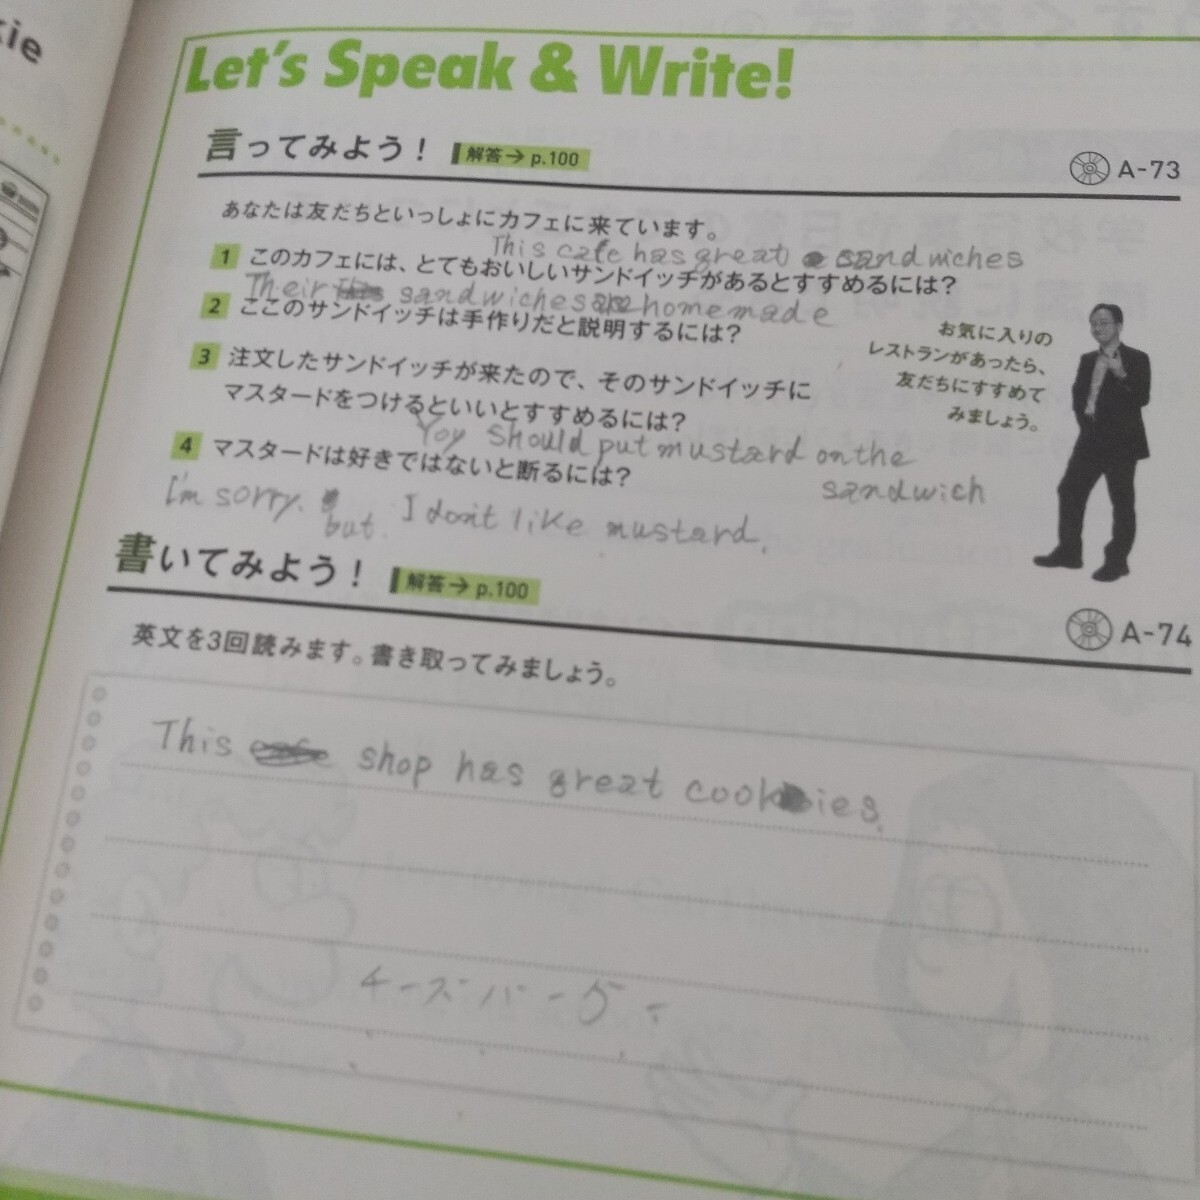 kie
Let's Speak & Write!
言ってみよう! 解答→p.100 A-73
あなたは友だちといっしょにカフェに来ています。
This cafe has great sandwiches
1 このカフェには、とてもおいしいサンドイッチがあるとすすめるには?
Their sandwiches are homemade
2 ここのサンドイッチは手作りだと説明するには?
3 注文したサンドイッチが来たので、そのサンドイッチに
マスタードをつけるといいとすすめるには?
You should put mustard on the
sandwich
4 マスタードは好きではないと断るには?
I'm sorry. but I don't like mustard.
お気に入りの
レストランがあったら、
友だちにすすめて
みましょう。
書いてみよう! 解答→p.100 A-74
英文を3回読みます。書き取ってみましょう。
This shop has great cookies.
チーズバーガー